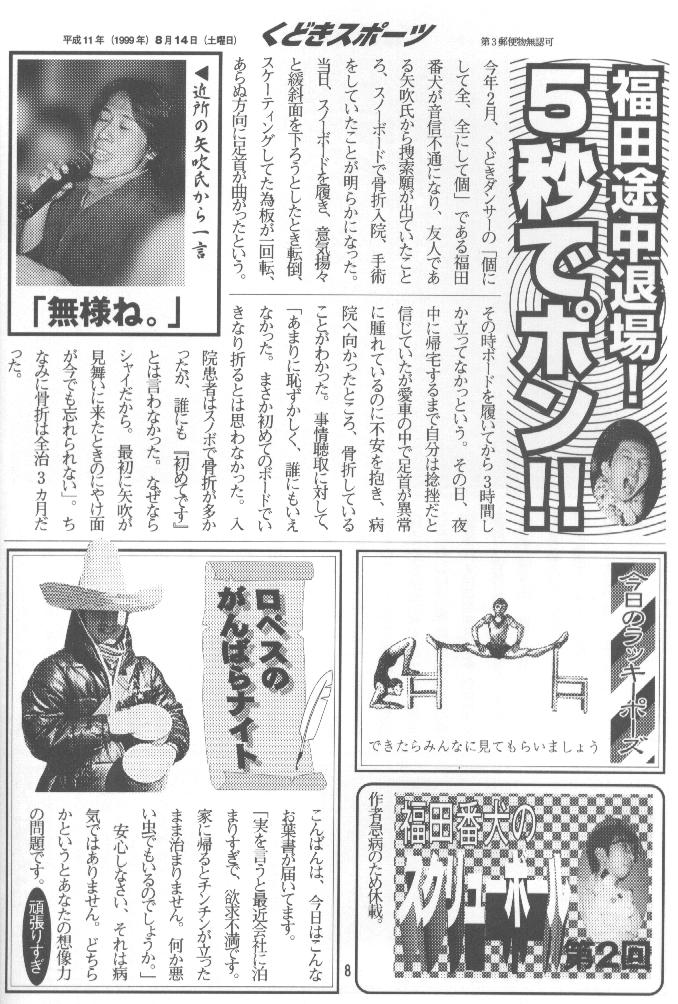 平成11年（1999年）8月14日（土曜日）
くどきスポーツ
第3郵便物無認可
福田途中退場！
5秒でポン!!
今年2月、くどきダンサーの「個に
して全、全にして個」である福田
番犬が音信不通になり、友人であ
る矢吹氏から捜索願が出ていたこと
ろ、スノーボードで骨折入院、手術
をしていたことが明らかになった。
当日、スノーボードを履き、意気揚々
と緩斜面を下ろうとしたとき転倒、
スケーティングしてた為板が一回転、
あらぬ方向に足首が曲がったという。
◀近所の矢吹氏から一言
「無様ね。」
その時ボードを履いてから3時間し
か立ってなかっという。その日、夜
中に帰宅するまで自分は捻挫だと
信じていたが愛車の中で足首が異常
に腫れているのに不安を抱き、病
院へ向かったところ、骨折している
ことがわかった。事情聴取に対して、
「あまりに恥ずかしく、誰にもいえ
なかった。まさか初めてのボードでい
きなり折るとは思わなかった。入
院患者はスノボで骨折が多か
ったが、誰にも『初めてです』
とは言わなかった。なぜなら
シャイだから。最初に矢吹が
見舞いに来たときのにやけ面
が今でも忘れられない」。ち
なみに骨折は全治3ヵ月だ
った。
今日のラッキーポーズ
できたらみんなに見てもらいましょう
ロペスの
がんばらナイト
こんばんは、今日はこんな
お葉書が届いてます。
「実を言うと最近会社に泊
まりすぎで、欲求不満です。
家に帰るとチンチンが立った
まま治まりません。何か悪
い虫でもいるのでしょうか。」
安心しなさい、それは病
気ではありません。どちら
かというとあなたの想像力
の問題です。
頑張りすぎ
福田番犬の
スクリューボール
第2回
作者急病のため休載。
8